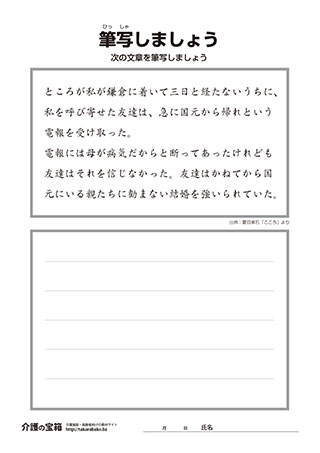 ひっ しゃ
筆写しましょう
次の文章を筆写しましょう
ところが私が鎌倉に着いて三日と経たないうちに、
私を呼び寄せた友達は、急に国元から帰れという
電報を受け取った。
電報には母が病気だからと断ってあったけれども
友達はそれを信じなかった。友達はかねてから国
元にいる親たちに勧まない結婚を強いられていた。
出典：夏目漱石「こころ」より
介護の宝箱
介護施設・高齢者向けの素材サイト
http://takarabako.bz/
月 日 氏名